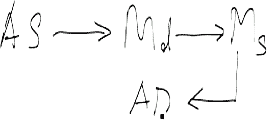 AS → Md → Ms
AD